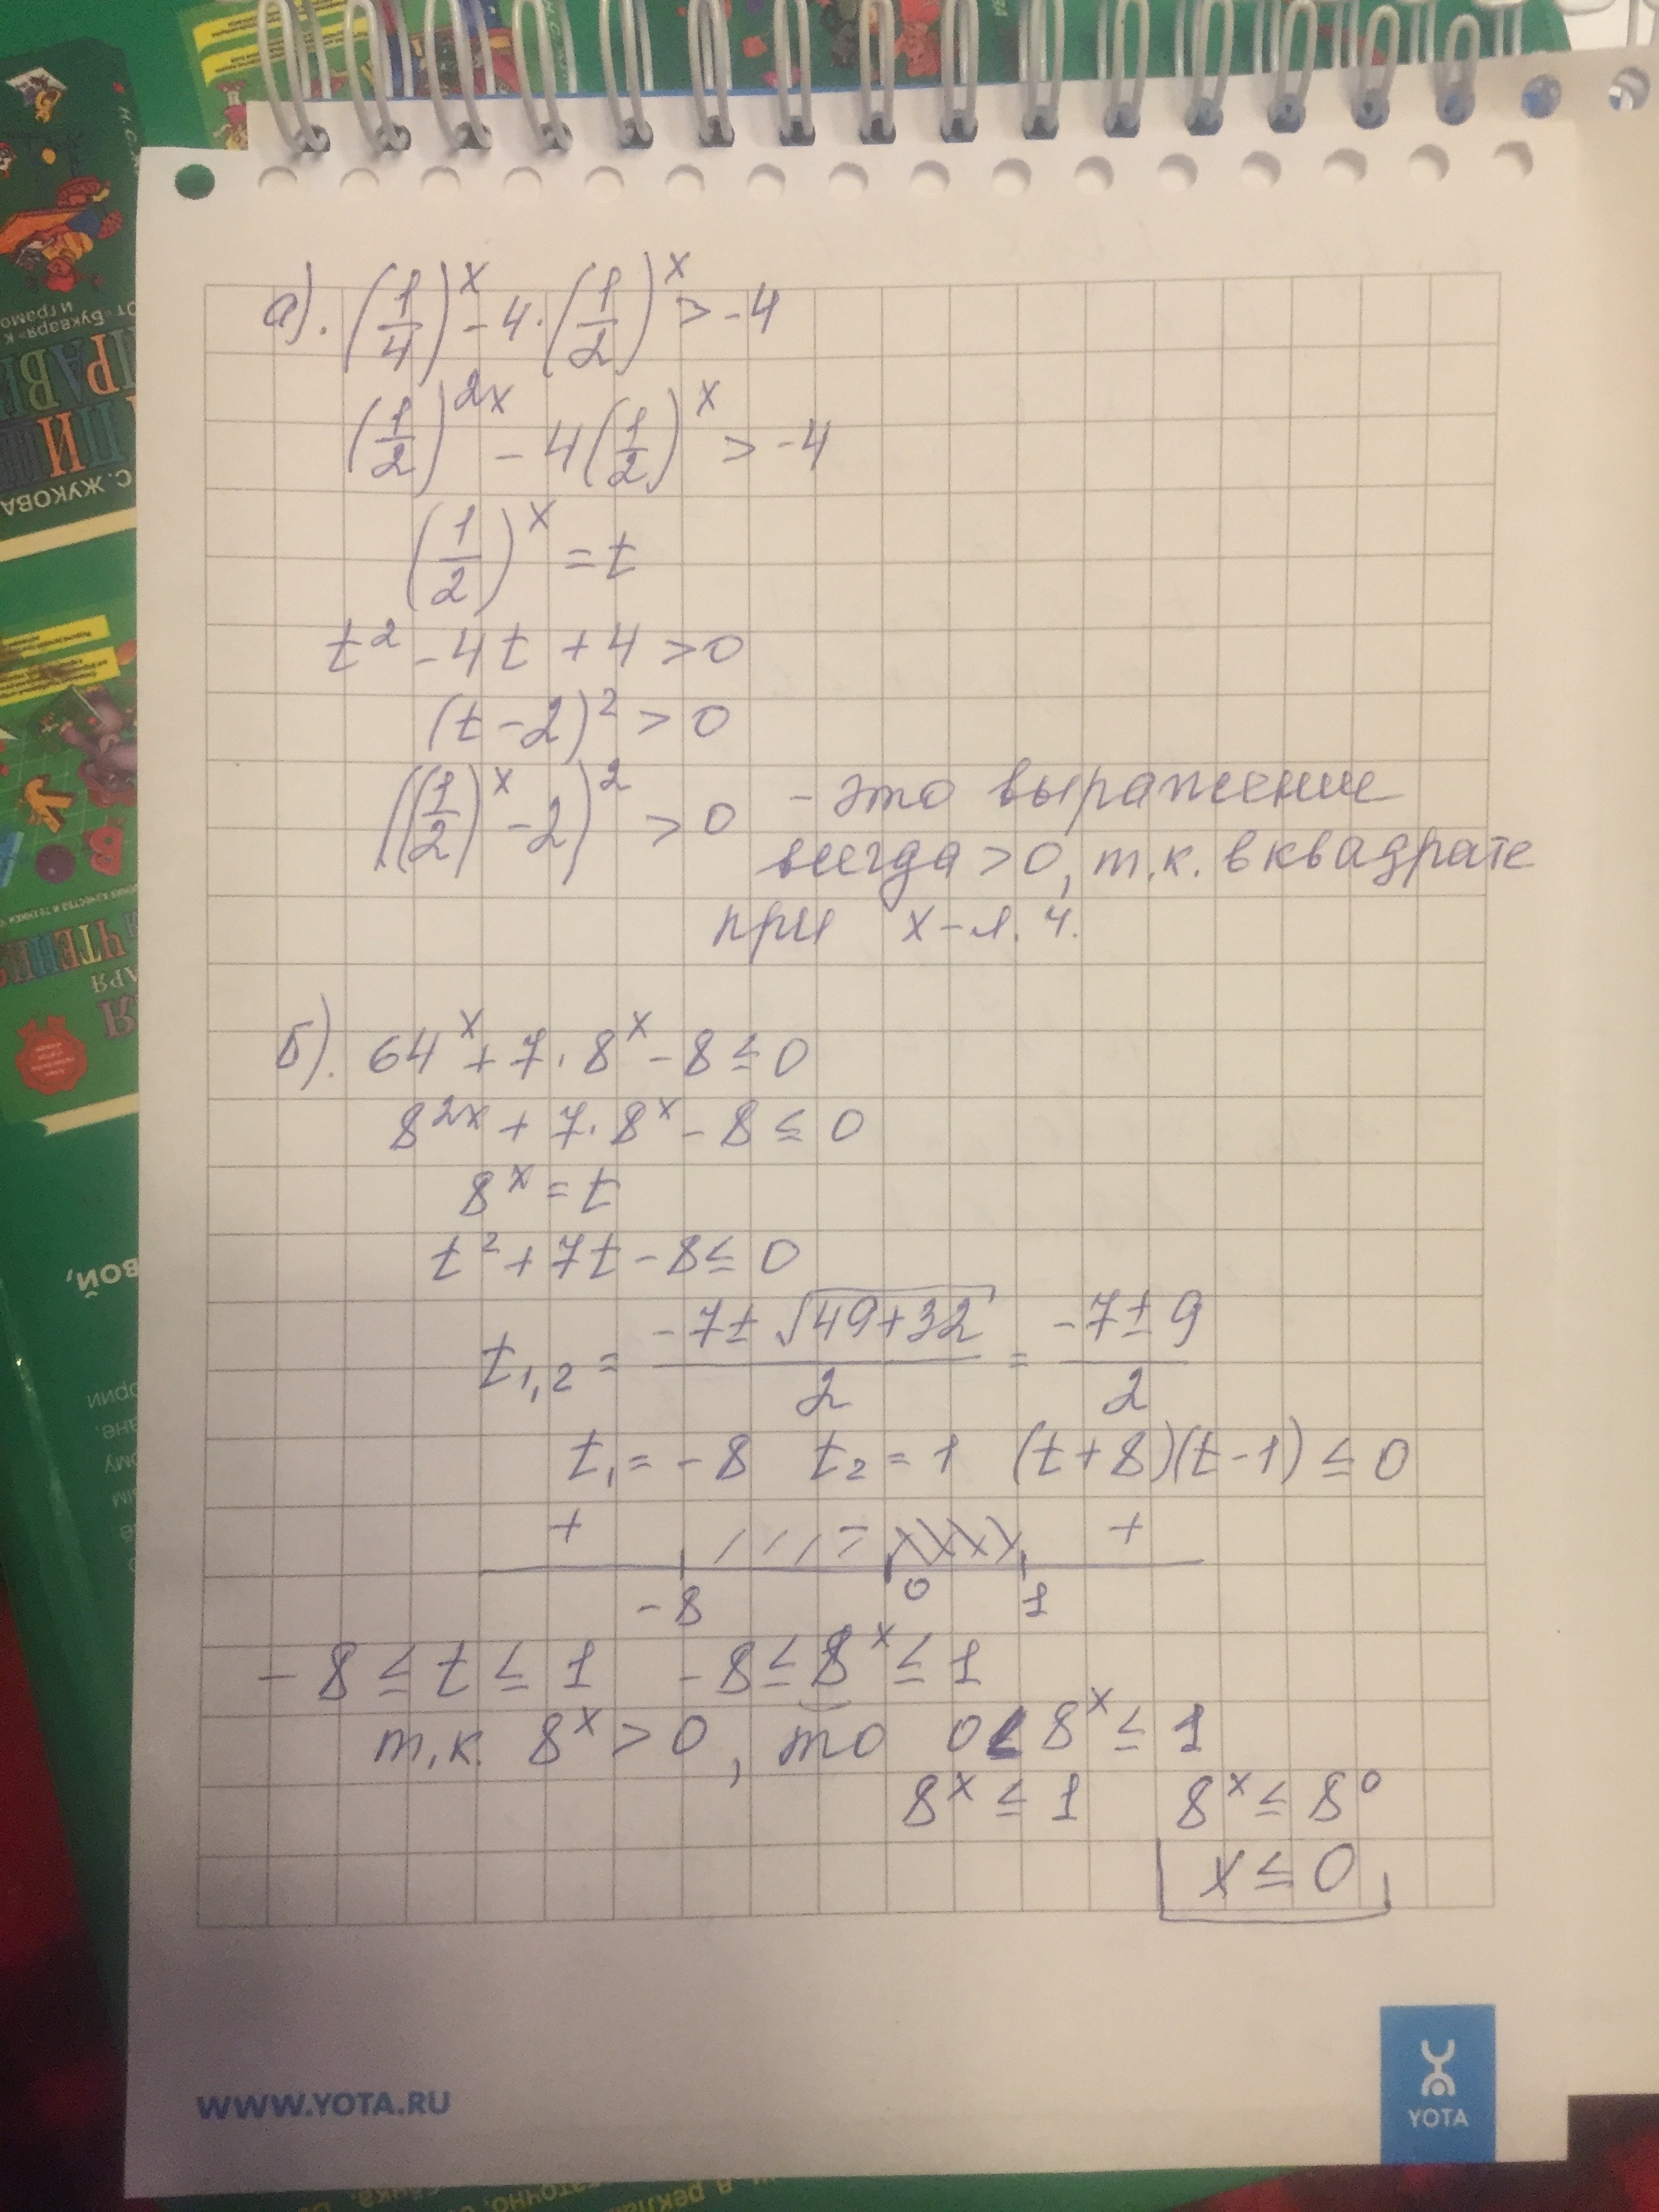 а). (1/4)^x - 4·(1/2)^x > -4
(1/2)^2x - 4(1/2)^x > -4
(1/2)^x = t
t² - 4t + 4 > 0
(t - 2)² > 0
((1/2)^x - 2)² > 0 - это выражение
всегда > 0, т.к. в квадрате
при x - л. ч.
б). 64^x + 7·8^x - 8 ≤ 0
8^2x + 7·8^x - 8 ≤ 0
8^x = t
t² + 7t - 8 ≤ 0
t1,2 = (-7 ± √(49+32))/2 = (-7 ± 9)/2
t1 = -8 t2 = 1 (t+8)(t-1) ≤ 0
+ - +
-8 0 1
-8 ≤ t ≤ 1 -8 ≤ 8^x ≤ 1
т.к. 8^x > 0, то 0 < 8^x ≤ 1
8^x ≤ 1 8^x ≤ 8^0
x ≤ 0
WWW.YOTA.RU
YOTA
С. ЖУКОВА